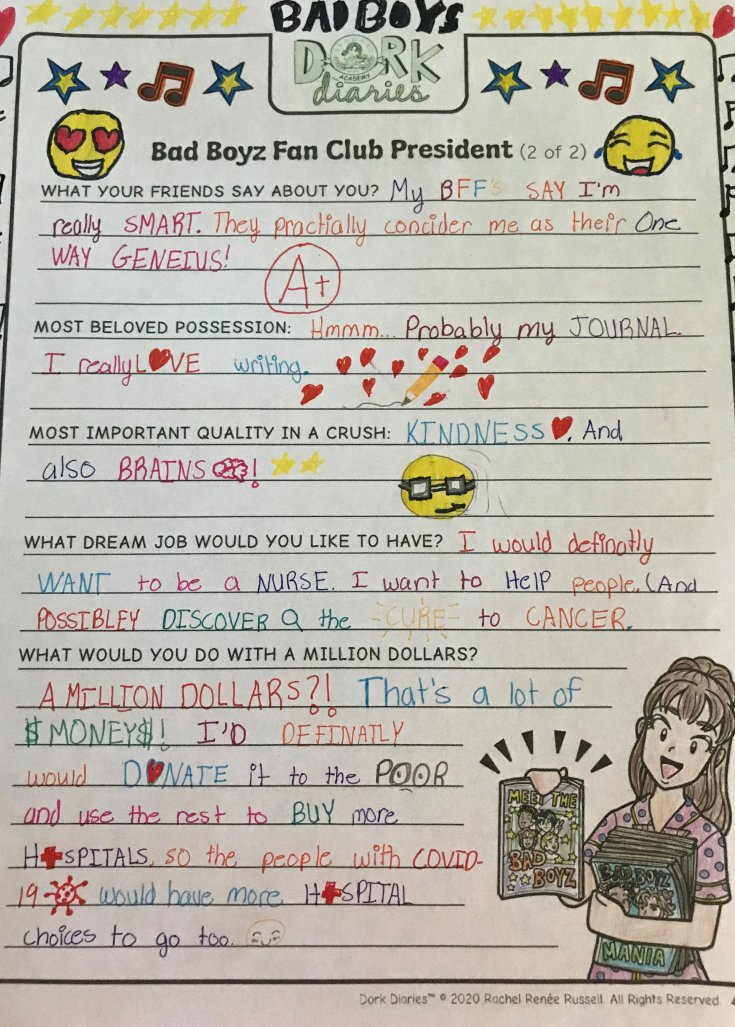 BAD BOYS
DORK
ACADEMY
diaries
Bad Boyz Fan Club President (2 of 2)
WHAT YOUR FRIENDS SAY ABOUT YOU? My BFF'S SAY I'm
really SMART. They practially concider me as their One
WAY GENEIUS!
A+
MOST BELOVED POSSESSION: Hmmm... Probably my JOURNAL.
I really LOVE writing.
MOST IMPORTANT QUALITY IN A CRUSH: KINDNESS. And
also BRAINS!
WHAT DREAM JOB WOULD YOU LIKE TO HAVE? I would definatly
WANT to be a NURSE. I want to HelP people. (And
POSSIBLEY DISCOVER the CURE to CANCER.
WHAT WOULD YOU DO WITH A MILLION DOLLARS?
A MILLION DOLLARS?! That's a lot of
$MONEY$! I'D DEFINATLY
would DONATE it to the POOR
and use the rest to BUY more
HOSPITALS, so the people with COVID-
19 would have more HOSPITAL
choices to go too.
MEET THE
BAD
BOYZ
BAD BOYZ
MANIA
Dork Diaries™ © 2020 Rachel Renée Russell. All Rights Reserved. 4